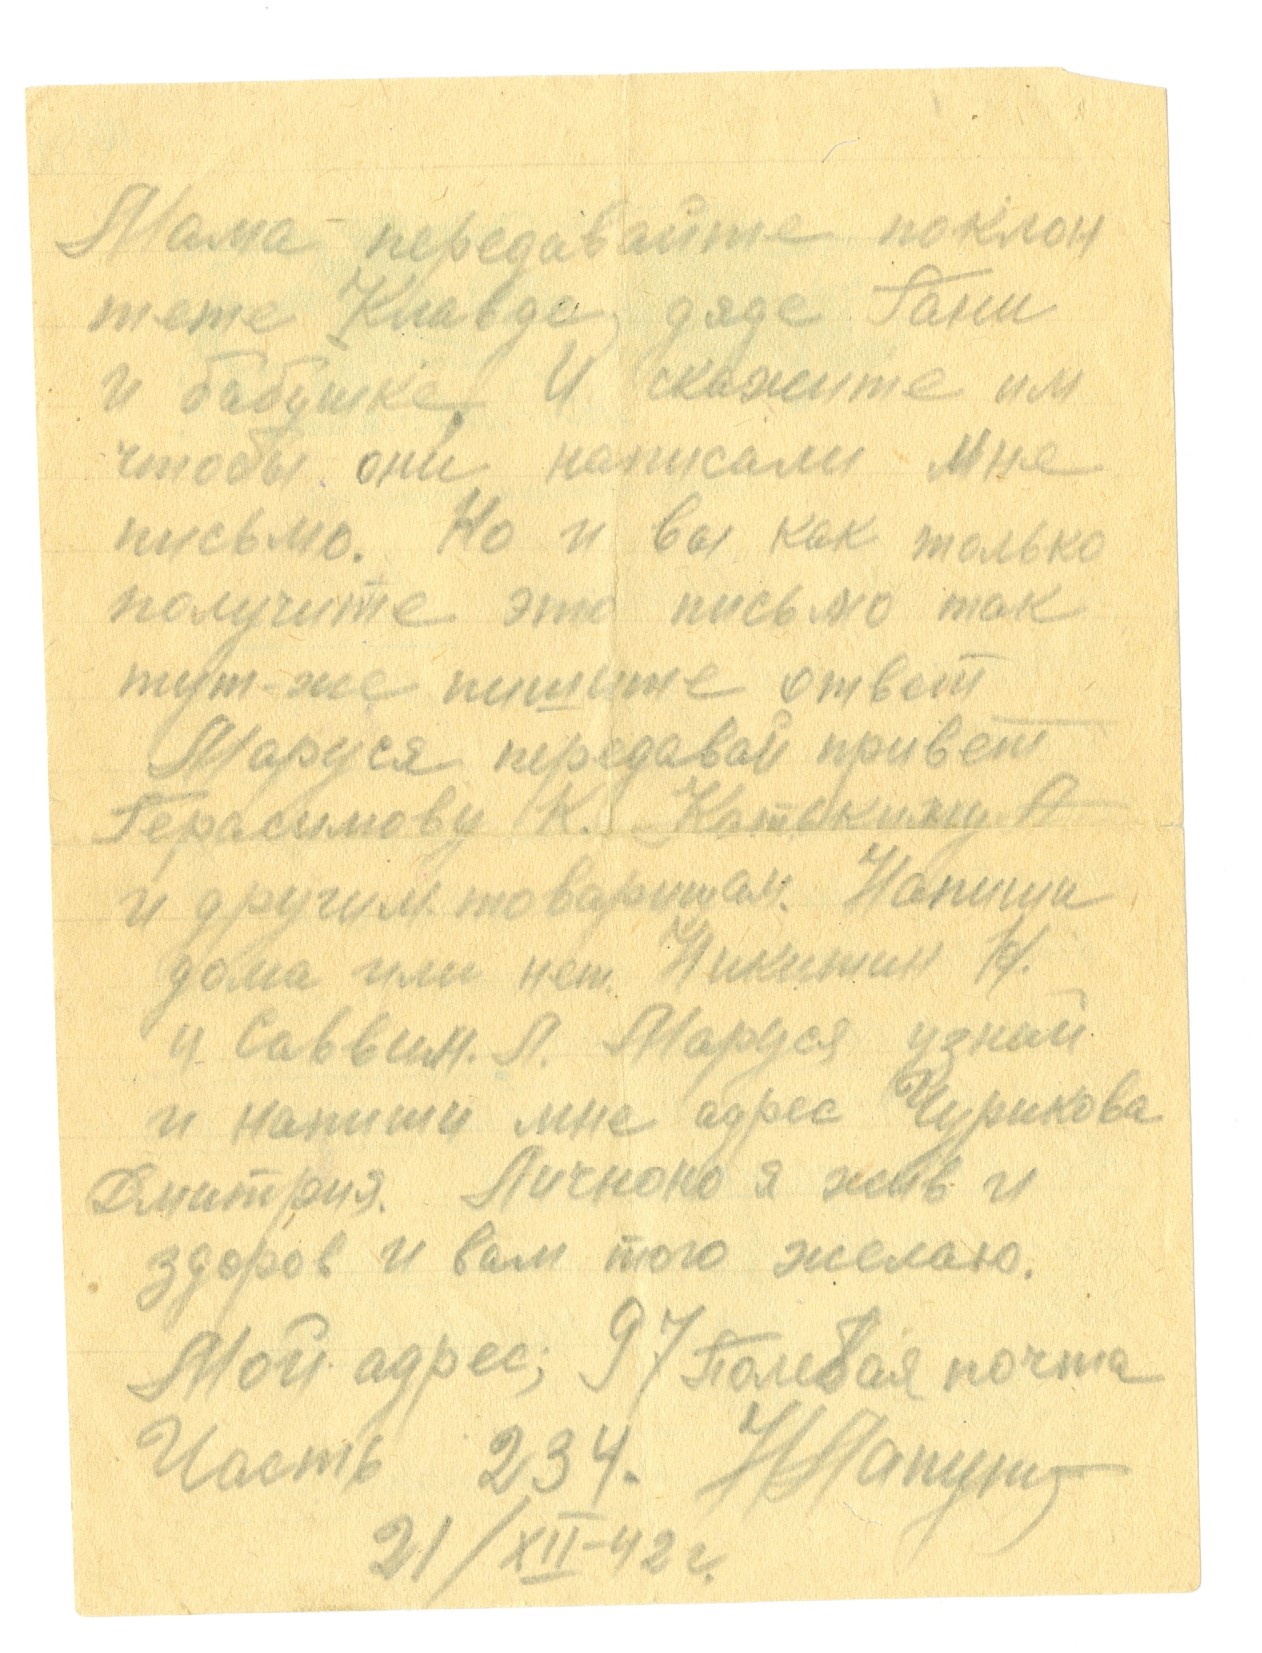 Мама передавайте поклон
тете Клавде, дяде Гани
и бабушке. И скажите им
чтобы они написали мне
письмо. Но и вы как только
получите это письмо так
тут-же пишите ответ
Маруся передавай привет
Герасимову К.
и другим товарищам. Напиши
дома или нет. Никитин Н.
и Саввин. Л. Маруся узнай
и напиши мне адрес Чурикова
Дмитрия. Личноно я жив и
здоров и вам того желаю.
Мой адрес; 97 Полевая почта
Часть 234.
21/XII-42 г.